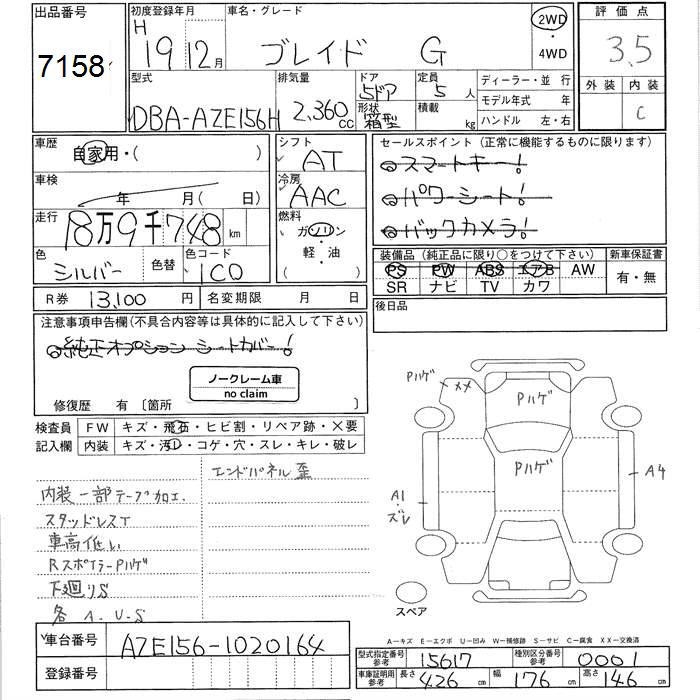 出品番号
7158
初度登録年月
H 19 12月
車名・グレード
ブレイド G
2WD
・4WD
評価点
3.5
外装 内装
C
型式
DBA-AZE156H
排気量
2,360cc
ドア
5ドア
形状
箱型
定員
5人
積載
kg
ディーラー・並行
モデル年式 年
ハンドル 左・右
車歴
自家用・( )
車検
年 月(日)
走行
18万9千748km
色
シルバー
色替
色コード
1C0
シフト
AT
冷房
AAC
燃料
ガソリン
軽・油
( )
セールスポイント(正常に機能するものに限ります)
スマートキー!
パワーシート!
バックカメラ!
装備品(純正品に限り○をつけて下さい)
新車保証書
PS PW ABS エアB AW
SR ナビ TV カワ
有・無
R券 13,100円
名変期限 月 日
後日品
注意事項申告欄(不具合内容等は具体的に記入して下さい)
純正オプション シートカバー!
ノークレーム車
no claim
修復歴 有〔箇所 〕
検査員
記入欄
FW キズ・飛石・ヒビ割・リペア跡・X要
内装 キズ・汚レ・コゲ・穴・スレ・キレ・破レ
エンドパネル歪
内装一部テープ加工.
スタッドレスT
車高低い
RスポイラーPハゲ
下廻りS
各A.U.S
Pハゲ
XX
Pハゲ
Pハゲ
A1
・ズレ
A4
スペア
車台番号
AZE156-1020164
登録番号
A-キズ E-エクボ U-凹み W-補修跡 S-サビ C-腐食 XX-交換済
型式指定番号
参考
15617
種別区分番号
参考
0001
車庫証明用
参考
長さ 426cm
幅 176cm
高さ 146cm